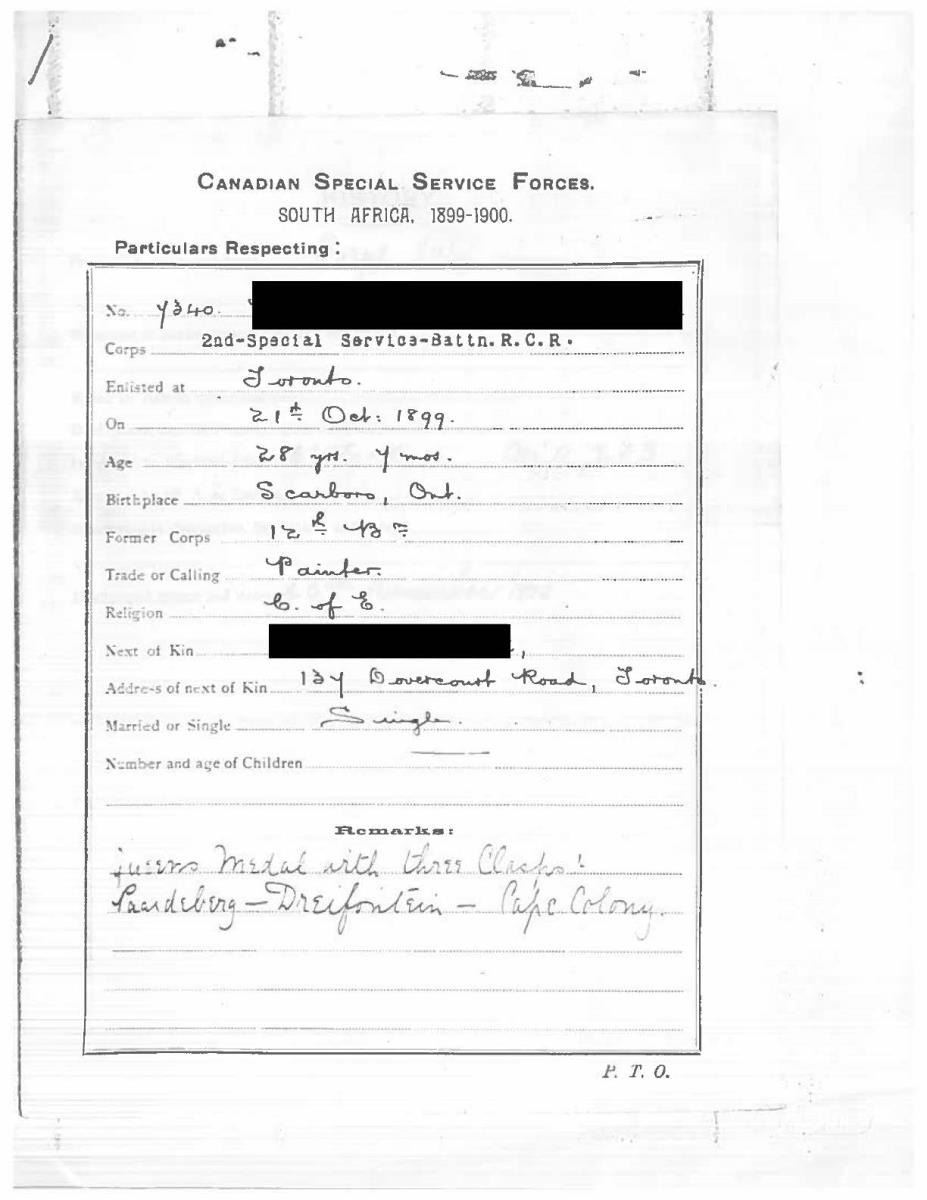 CANADIAN SPECIAL SERVICE FORCES.
SOUTH AFRICA, 1899-1900.
Particulars Respecting:
No. 7340.
Corps 2nd-Special Service-Battn. R. C. R.
Enlisted at Toronto.
On 21st Oct: 1899.
Age 28 yrs. 7 mos.
Birthplace Scarboro, Ont.
Former Corps 12th Bn
Trade or Calling Painter.
Religion C. of E.
Next of Kin ,
Address of next of Kin 137 Dovercourt Road, Toronto.
Married or Single Single.
Number and age of Children ———
Remarks:
Queens Medal with three Clasps:
Paardeberg — Dreifontein — Cape Colony.
P. T. O.